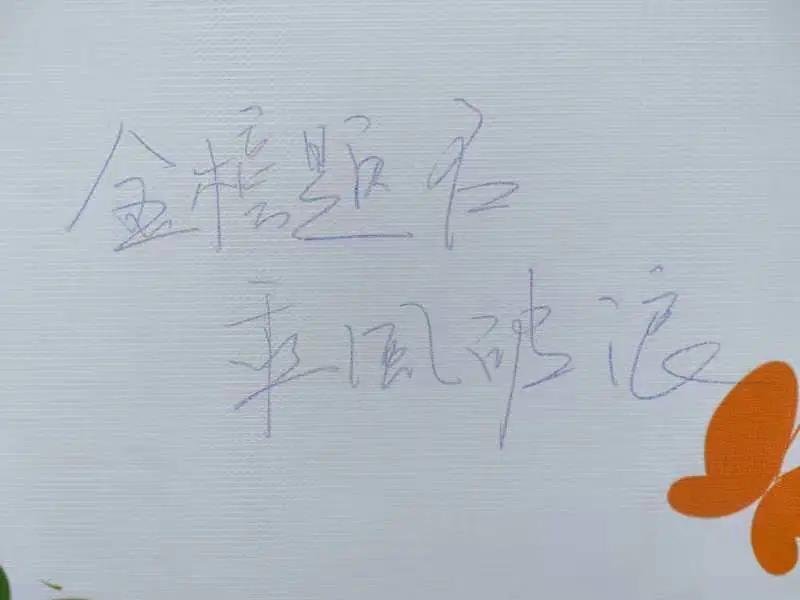 金榜题名
乘風破浪